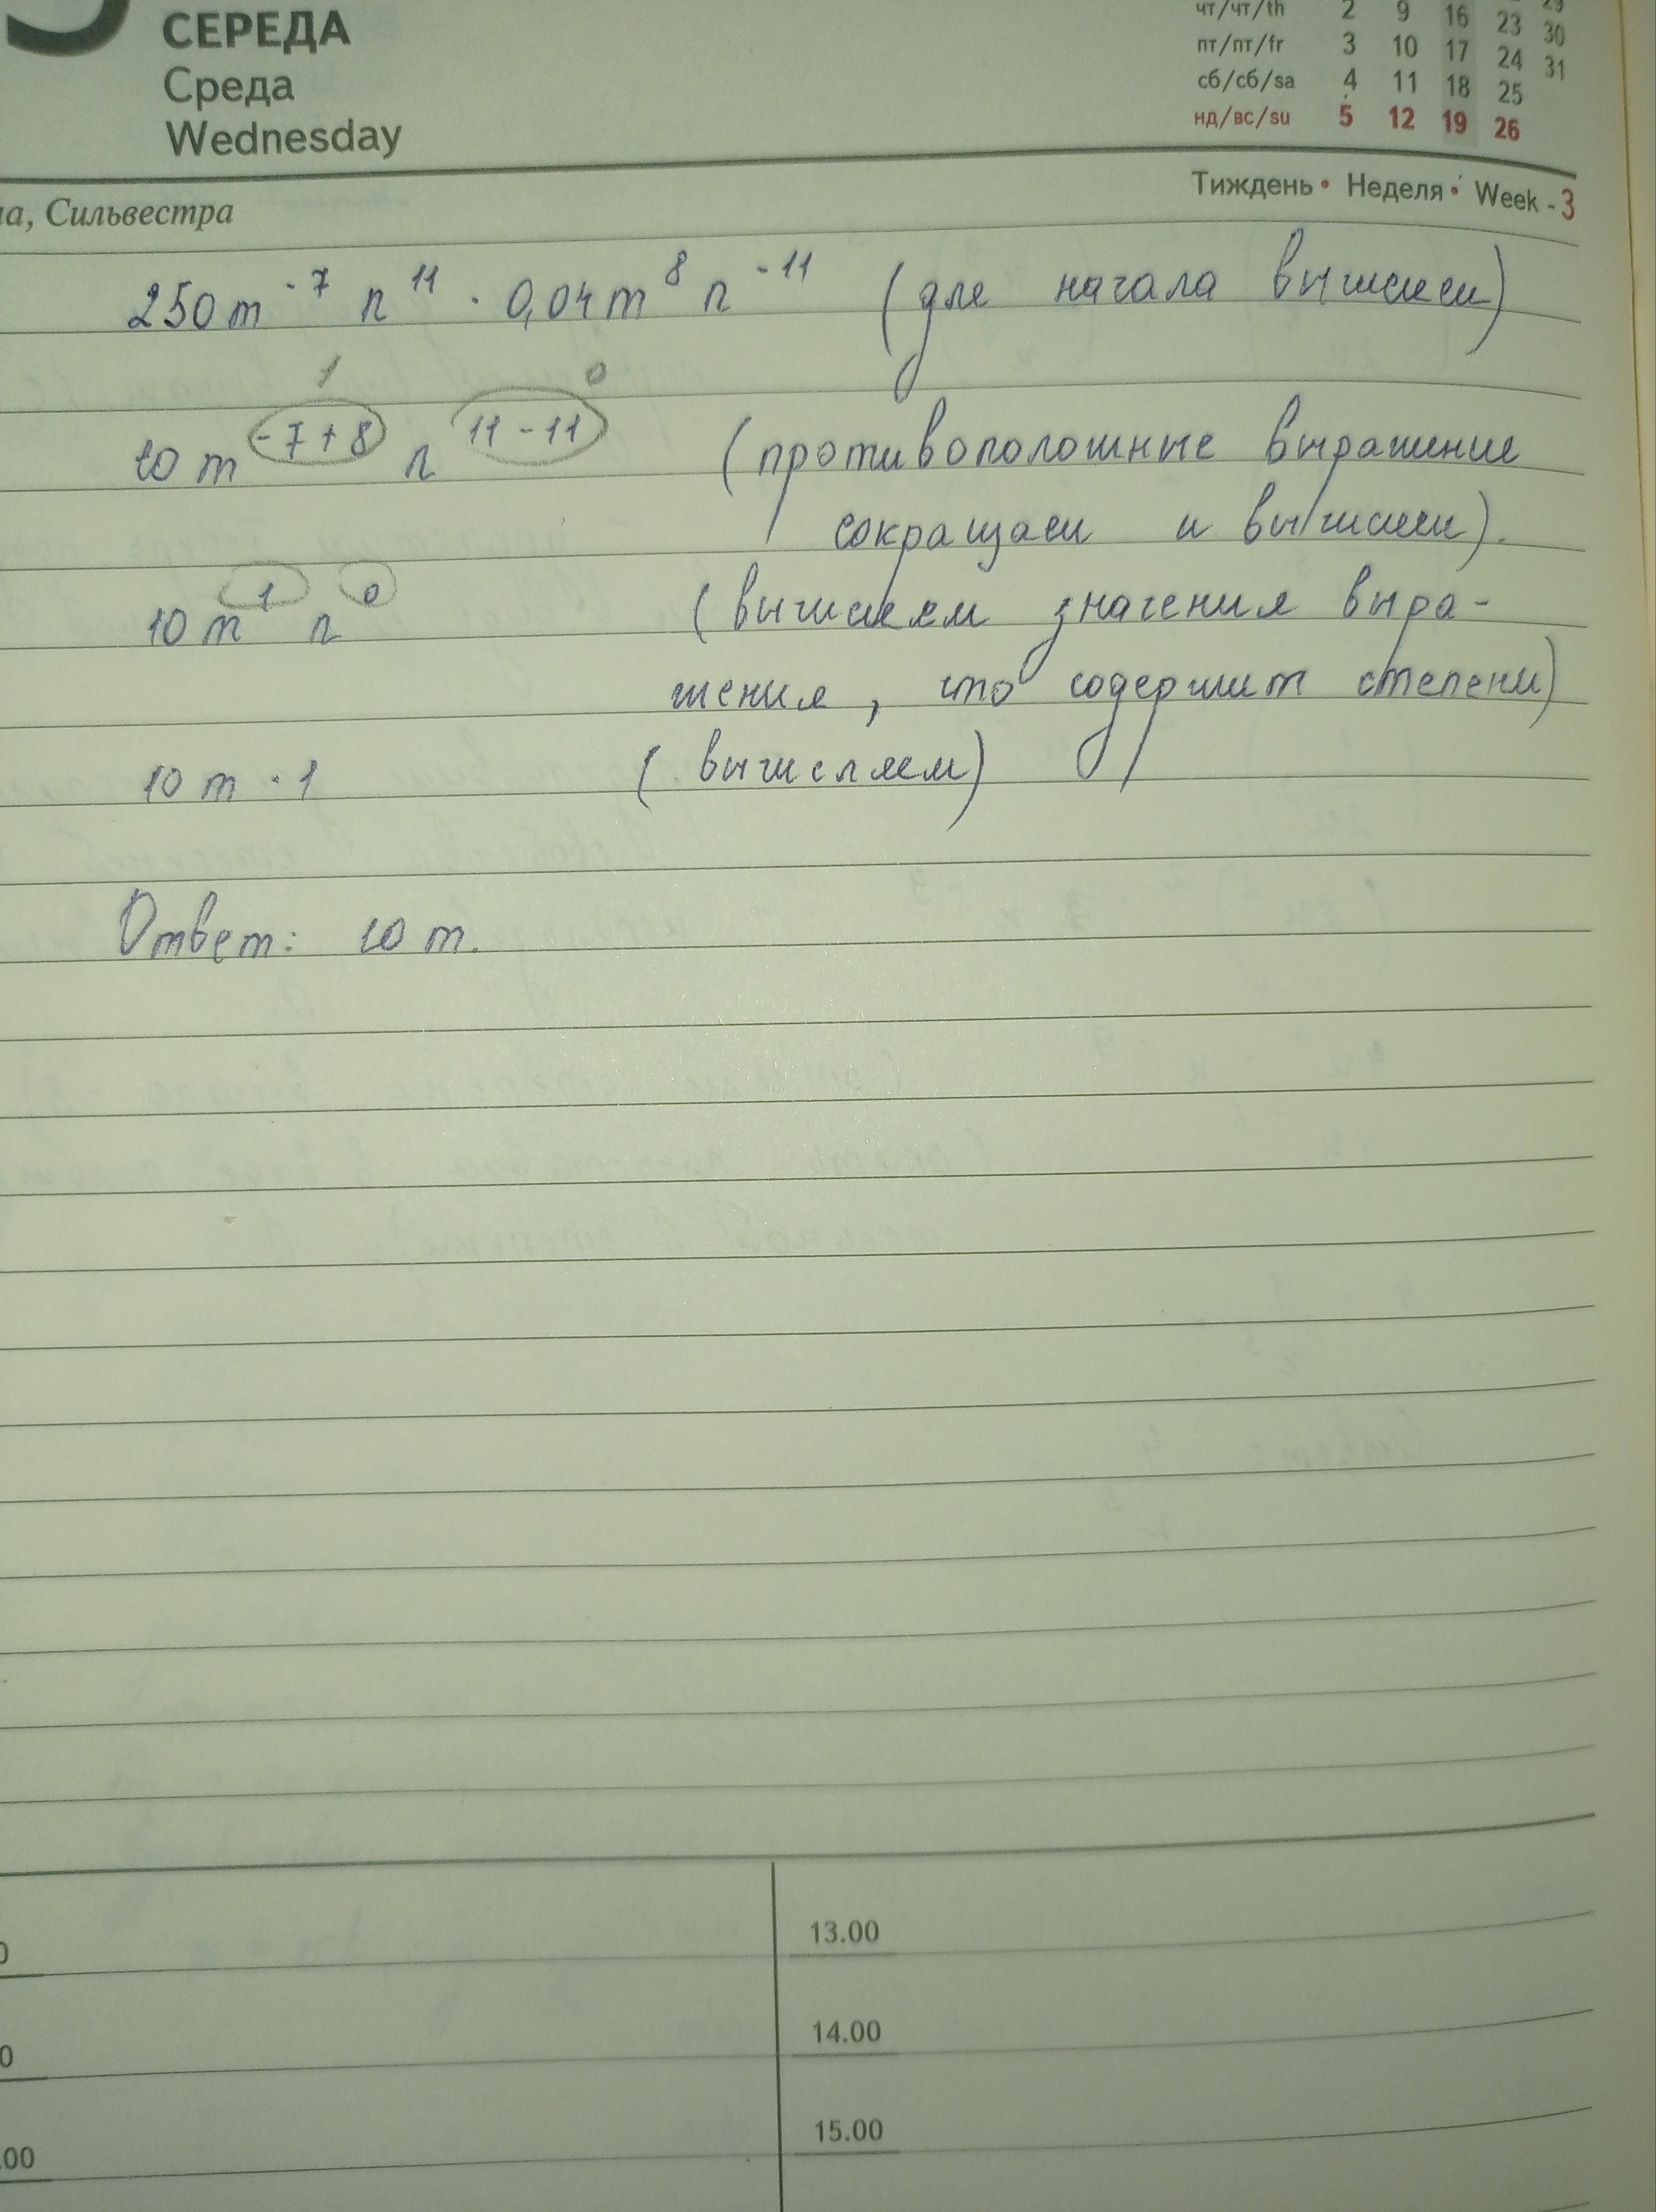 СЕРЕДА
Среда
Wednesday
чт/чт/th 2 9 16 23 30
пт/пт/fr 3 10 17 24 31
сб/сб/sa 4 11 18 25
нд/вс/su 5 12 19 26
Тиждень • Неделя • Week - 3
на, Сильвестра
250m⁻⁷ n¹¹ · 0,04m⁸ n⁻¹¹ (для начала вычислим)
1 0
10 m⁻⁷⁺⁸ n¹¹⁻¹¹ (противоположные выражение
сокращаем и вычислим).
10 m¹ n⁰ (вычисляем значения выра-
жения, что содержит степени)
10 m · 1 (вычисляем)
Ответ: 10 m.
13.00
14.00
15.00